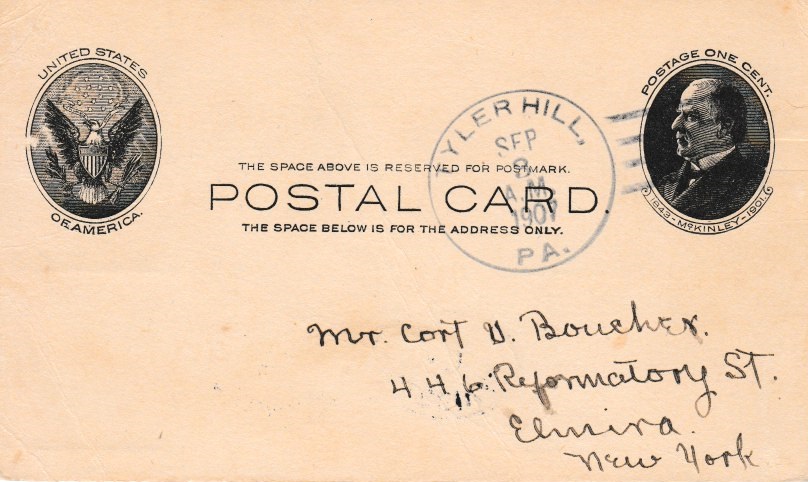 UNITED STATES
OF AMERICA.
POSTAGE ONE CENT.
1843-McKINLEY-1901.
TYLER HILL,
SEP
A.M.
1907
PA.
THE SPACE ABOVE IS RESERVED FOR POSTMARK.
POSTAL CARD.
THE SPACE BELOW IS FOR THE ADDRESS ONLY.
Mr. Cort V. Boucher.
446 Reformatory St.
Elmira.
New York